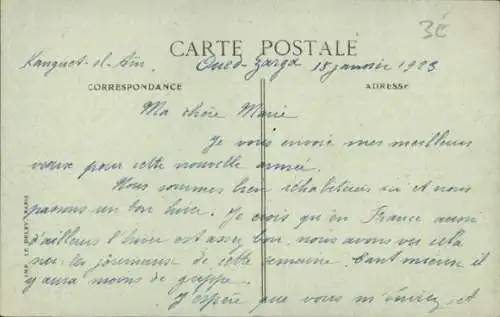 3€
CARTE POSTALE
Kanguet-el-Ain Oued-Zarga 18 janvier 1923
CORRESPONDANCE ADRESSE
Ma chère Marie
Je vous envoie mes meilleurs
vœux pour cette nouvelle année.
Nous sommes bien réhabitués ici et nous
passons un bon hiver. Je crois qu'en France aussi
d'ailleurs l'hiver est assez bon, nous avons vu cela
sur les journaux de cette semaine. Tant mieux il
y aura moins de grippe.
J'espère que vous m'écrirez, et
IMP. LE DELEY, PARIS